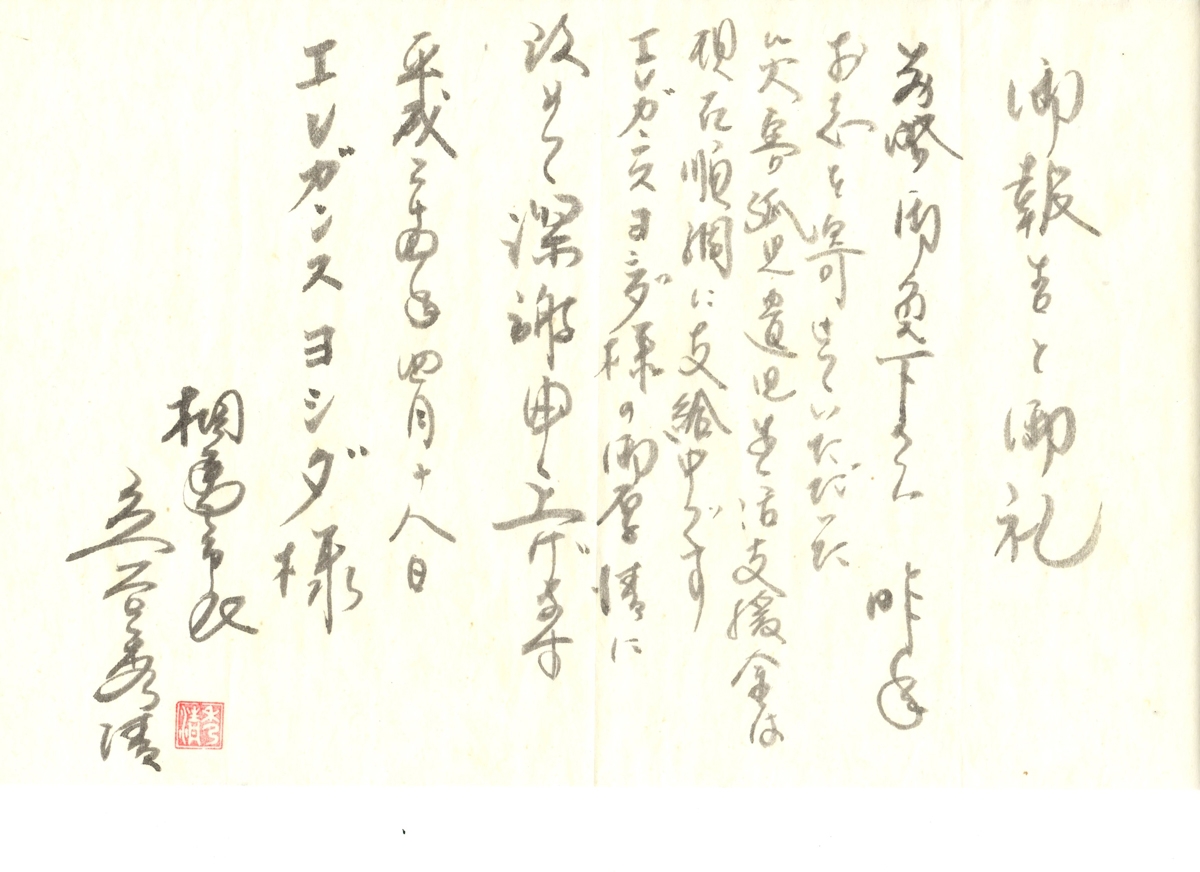 御報告と御礼
前略 御免下さい 昨年
お志を寄せていただいた
災害孤児遺児生活支援金は
現在順調に支給中です
エレガンスヨシダ様の御厚情に
改めて深謝申し上げます
平成二十四年四月十八日
エレガンスヨシダ様
相馬市長
立谷秀清
秀清